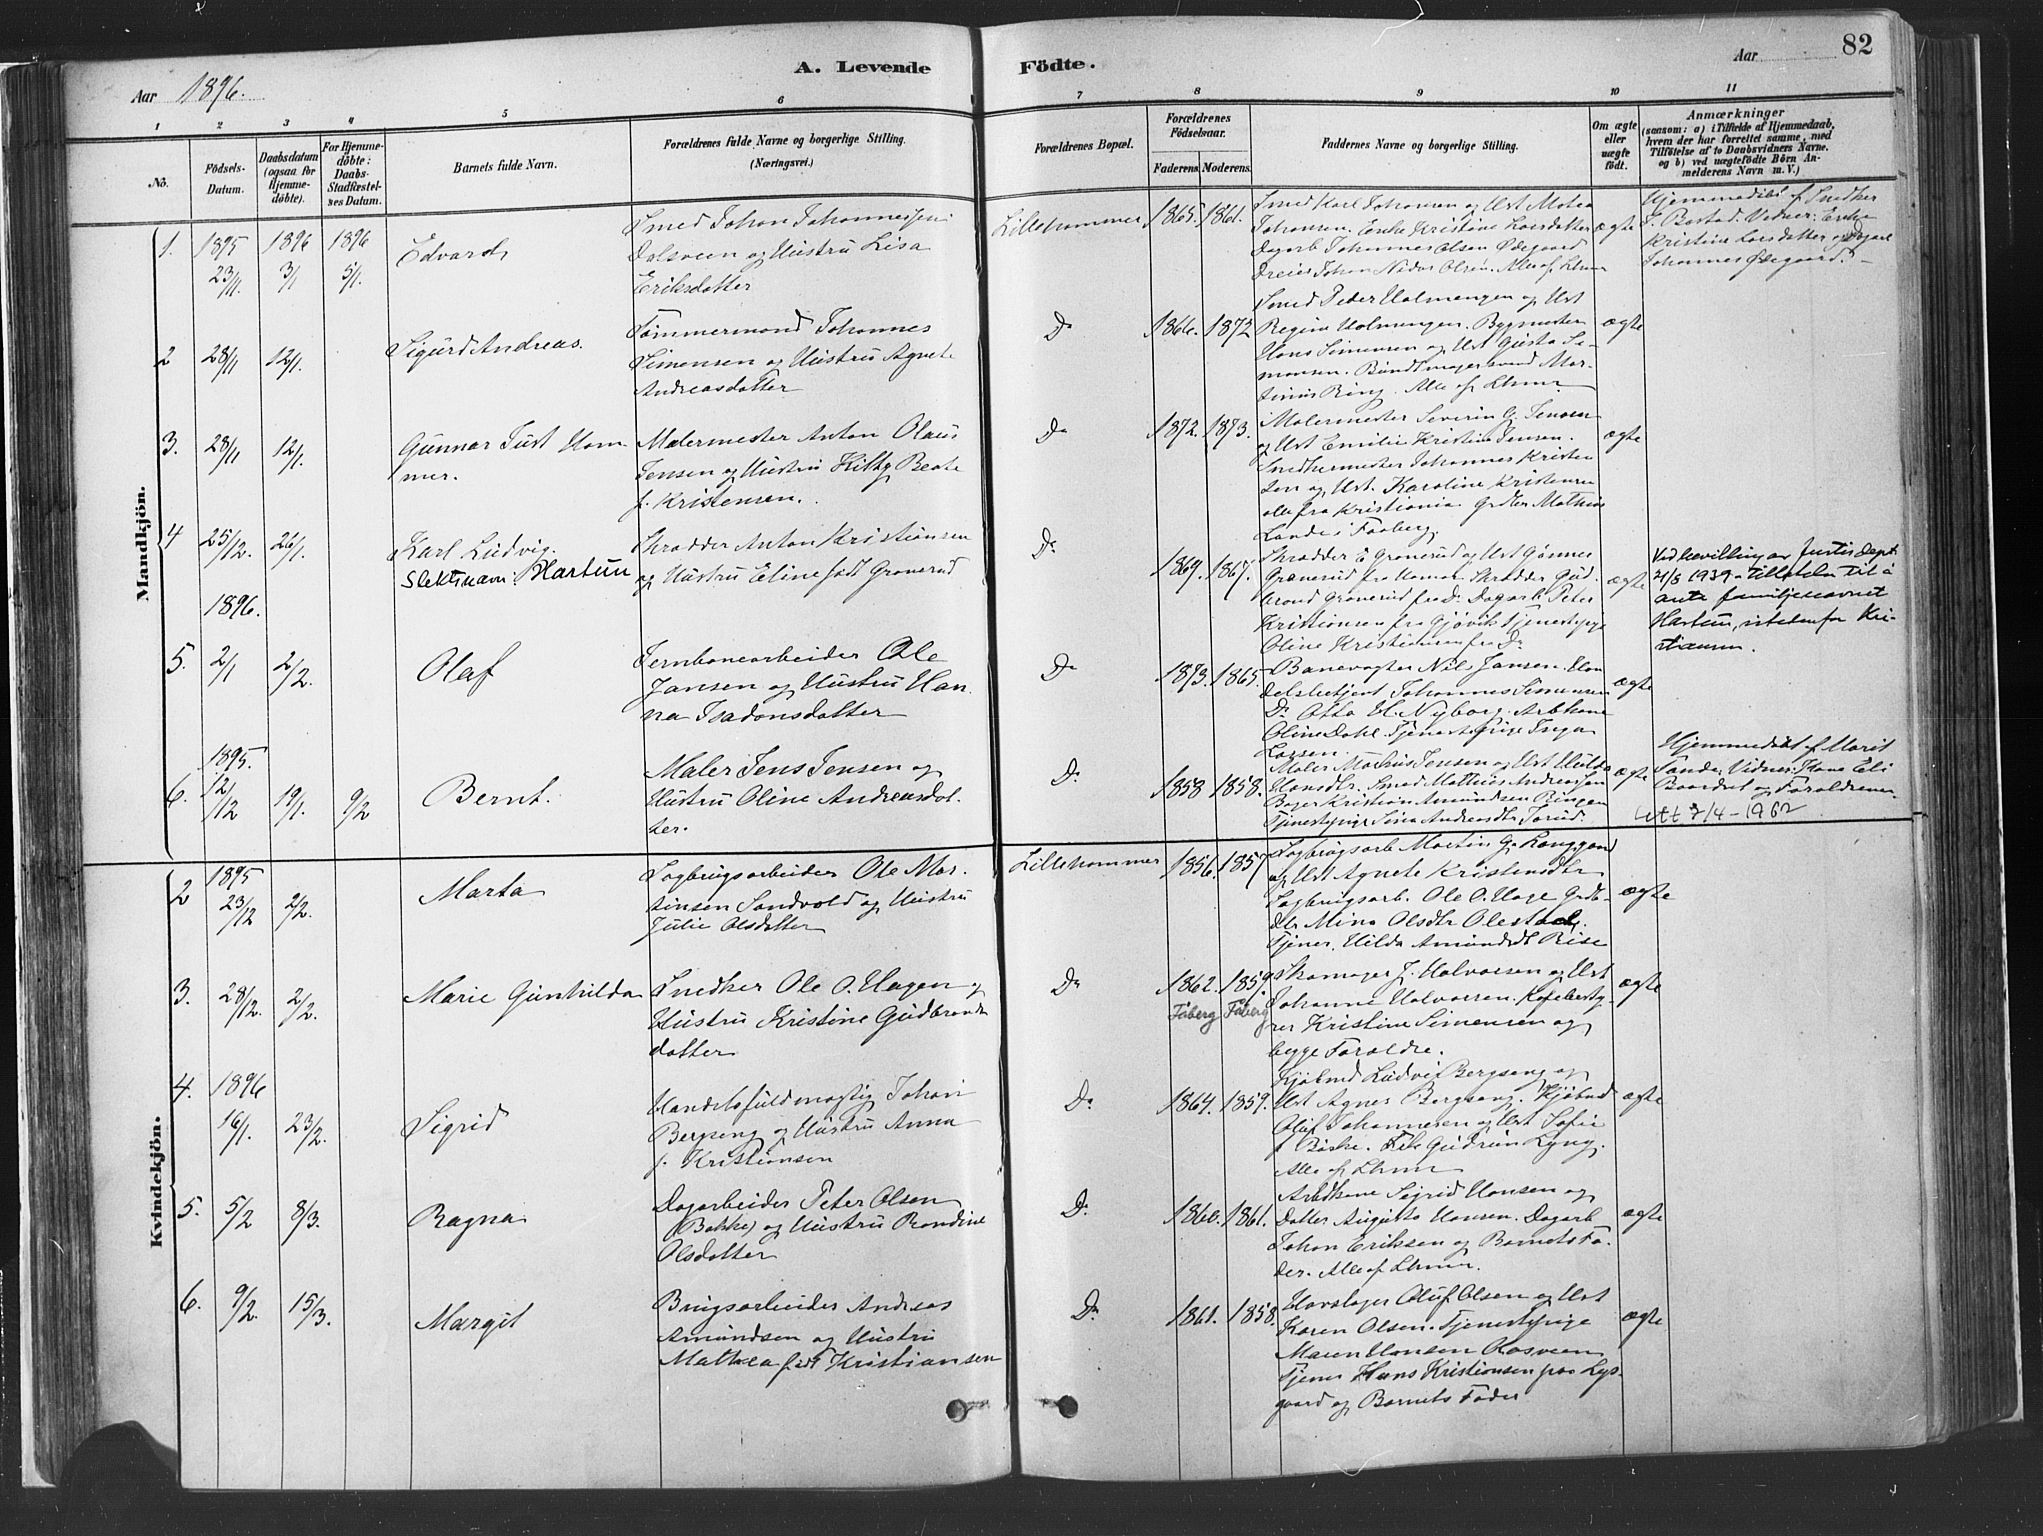 A. Levende Födte.
Aar 1896.
Aar
82
1 2 3 4 5 6 7 8 9 10 11
No.
Födsels-Datum.
Daabsdatum (ogsaa for Hjemme-döbte).
For Hjemme-döbte: Daabs-Stadfæstel-ses Datum.
Barnets fulde Navn.
Forældrenes fulde Navne og borgerlige Stilling. (Næringsvei.)
Forældrenes Bopæl.
Forældrenes Födselsaar.
Faderens. Moderens.
Faddernes Navne og borgerlige Stilling.
Om ægte eller uægte födt.
Anmærkninger
(saasom: a) i Tilfælde af Hjemmedaab, hvem der har forrettet samme, med Tilföielse af to Daabsvidners Navne. og b) ved uægtefödte Börn An-melderens Navn m. V.)
Mandkjön.
1. 1895 23/11. 1896 3/1 1896 5/1. Edvard
Smed Johan Johannessen
Dalsveen og Hustru Lisa
Eriksdatter
Lillehammer 1865. 1861.
Smed Karl Johansen og Ust Matea
Johansen. Enke Kristine Larsdatter
Dagarb Johannes Olsen Ødegaard
Dreier Johan Nidar Olsen. Alle af Lhmr
ægte
Hjemmedøbt af Snedker
J. Bastad. Vidner: Enke
Kristine Larsdatter og Dagarb
Johannes Ødegaard.
2 28/11 12/1. Sigurd Andreas.
Tømmermand Johannes
Simensen og Hustru Agnete
Andreasdatter
Do 1866. 1872
Smed Peder Holmengen og Ust
Regine Holmengen. Bygmester
Hans Simensen og Ust Gusta Si-
mensen. Buntmagersvend Mar-
tinius Ring. Alle af Lhmr
ægte
3. 28/11 12/1. Gunnar Just Ham
mer.
Malermester Anton Olaus
Jensen og Hustru Kitty Beate
f. Kristensen.
Do 1872. 1873.
Malermester Severin G. Jensen
og Ust Emilie Kristine Jensen.
Snedkermester Johannes Kristen
sen og Ust. Karoline Kristensen
alle fra Kristiania Grdbr Mathias
Lande i Faaberg.
ægte
4 25/12. 26/1. Karl Ludvig.
Slektsnavn: Hartun
Skrædder Anton Kristiansen
og Hustru Eline født Granerud
Do 1869. 1867.
Skrædder E Granerud og Ust Gunnes
Granerud fra Hamar Skrædder Gud
brand Granerud fra Do. Dagarb. Peter
Kristiansen fra Gjøvik Tjenestepige
Oline Kristiansen fra Do
ægte
Ved bevilling av Justis Dept.
21/3 1939 tillatelse til å
anta familjenavnet
Hartun, istedenfor Kri-
stiansen.
1896.
5. 2/1 2/2. Olaf
Jernbanearbeider Ole
Jansen og Hustru Han-
na Isadorsdatter
Do 1873. 1865.
Banevogter Nils Jansen. Han
delsbetjent Johannes Simensen
Do Otto H. Nyborg. Arbkone
Oline Dahl. Tjenestepige Inga
Larsen.
ægte
1895.
6. 12/12 19/1. 9/2 Bernt.
Maler Jens Jensen og
Hustru Oline Andreasdat-
ter.
Do 1858 1858.
Maler Mathias Jensen og Ust Hulda
Hansdtr. Smed Mathias Andreassen
Bager Kristian Amundsen Ringen
Tjenestepige Sina Andreasdtr Sorud.
ægte
Hjemmedøbt af Marit
Sande. Vidner: Kone Eli
Baardset og Forældrene
Utt 7/4 - 1962
Kvindekjön.
2 1895 23/12 2/2. Marta
Sagbrugsarbeider Ole Mar-
tinsen Sandvold og Hustru
Julie Olsdatter
Lillehammer 1856. 1857
Sagbrugsarb Martin G. Langgaard
og Ust Agnete Kristensdtr
Sagbrugsarb. Ole O. Hage Grdb-
dtr Mina Olsdtr Olestad.
Tjener. Hilda Amundsdt Riise
ægte
3. 28/12. 2/2. Marie Gunhilda
Snedker Ole O. Hagen og
Hustru Kristine Gudbrands
datter
Do 1862. 1859.
Fåberg Fåberg
Skomager J. Halvorsen og Ust
Johanne Halvorsen. Kafebesty-
rer Kristine Simensen og
begge Forældre.
ægte
4. 1896 16/1. 23/2. Sigrid
Handelsfuldmægtig Johan
Bergseng og Hustru Anna
f. Kristiansen
Do 1864. 1859.
Kjøbmd Ludvig Bergseng og
Ust Agnes Bergseng. Kjøbmd
Olaf Johannesen og Ust Sofie
f. Bøske. Frk Gudrun Lyng.
Alle af Lhmr
ægte
5. 5/2 8/3. Ragna
Dagarbeider Peter Olsen
(Bakke) og Hustru Rondine
Olsdatter
Do 1860. 1861.
Arbdkone Sigrid Hansen og
Datter Augusta Hansen. Dagarb
Johan Eriksen og Barnets Fa-
der. Alle af Lhmr.
ægte
6. 9/2. 15/3. Margit
Brugsarbeider Andreas
Amundsen og Hustru
Mathea født Kristiansen
Do 1861. 1858.
Hovslager Oluf Olsen og Ust
Karen Olsen. Tjenestepige
Maren Hansen Rosveen
Tjener Hans Kristiansen paa Lys-
gaard og Barnets Fader
ægte